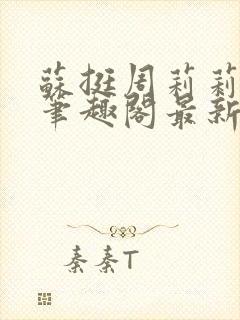 蘇挺周莉莉
筆趣閣最新
秦秦T